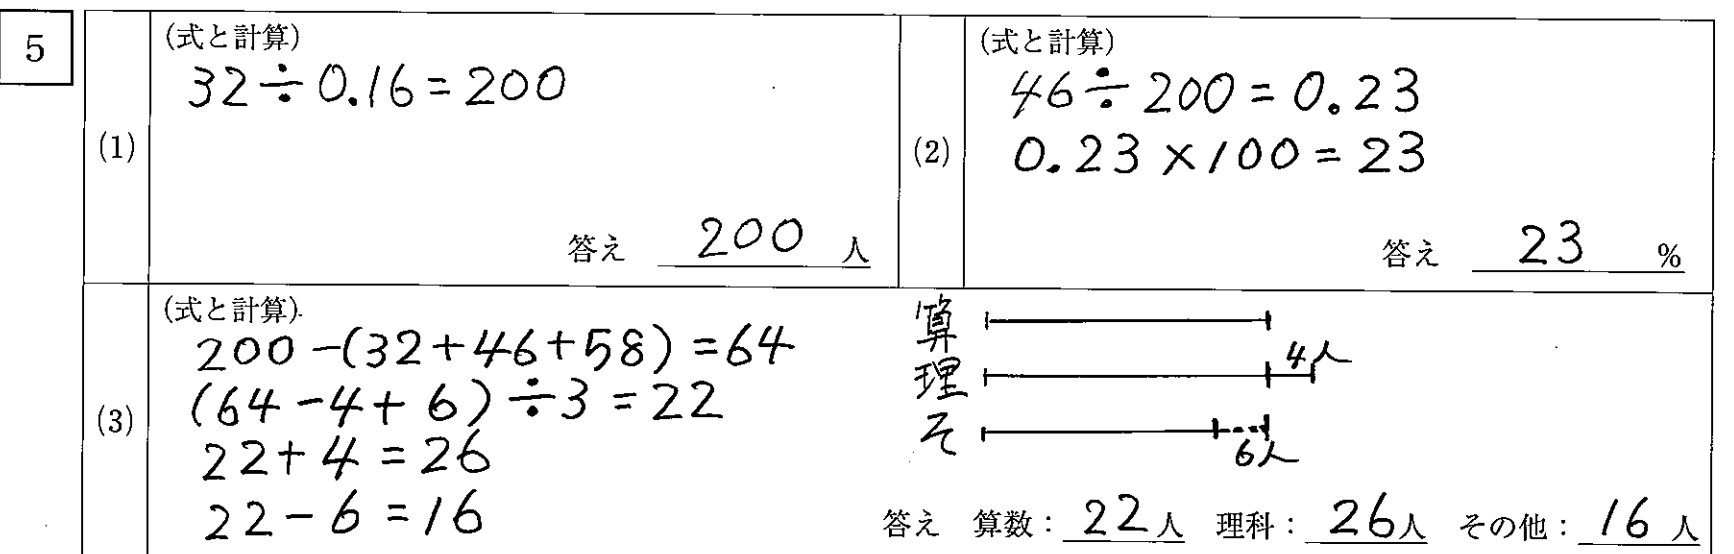 5
(1)
(式と計算)
32÷0.16=200
答え 200 人
(2)
(式と計算)
46÷200=0.23
0.23×100=23
答え 23 %
(3)
(式と計算)
200-(32+46+58)=64
(64-4+6)÷3=22
22+4=26
22-6=16
算
理 4人
そ 6人
答え 算数：22人 理科：26人 その他：16人